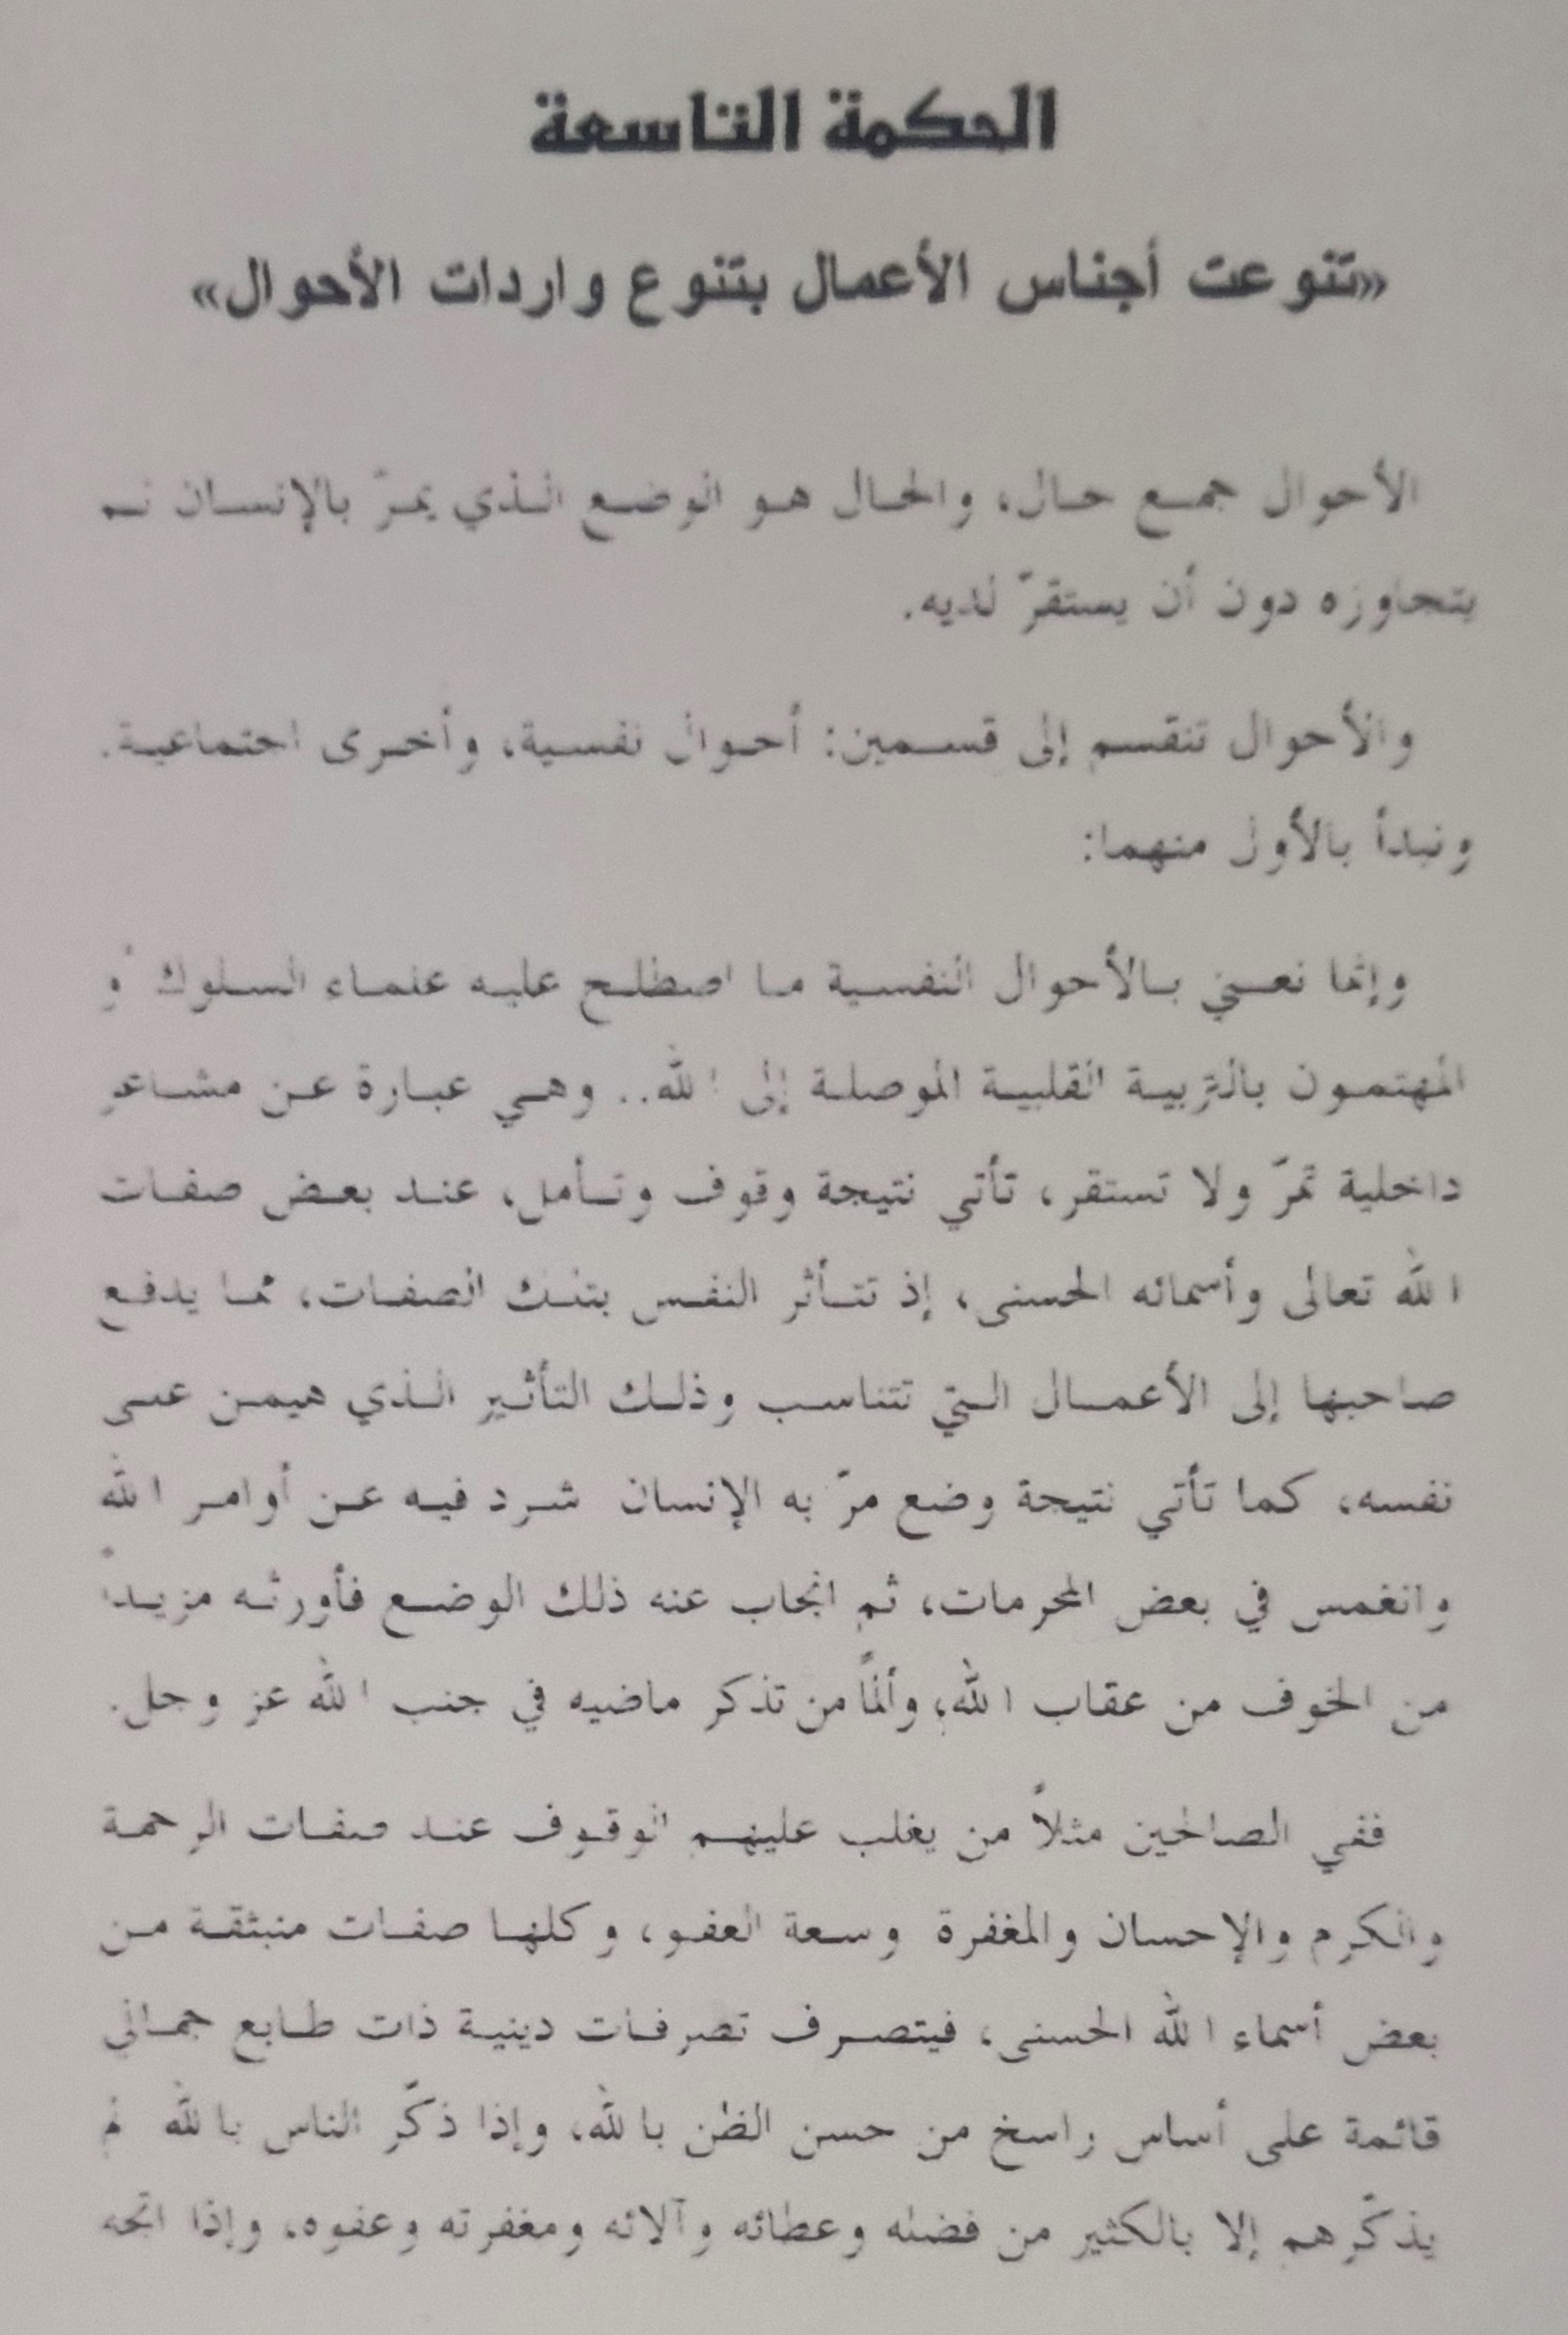 الحكمة التاسعة
«تنوعت أجناس الأعمال بتنوع واردات الأحوال»
الأحوال جمع حال، والحال هو الوضع الذي يمرّ بالإنسان ثم
يتجاوزه دون أن يستقرّ لديه.
والأحوال تنقسم إلى قسمين: أحوال نفسية، وأخرى اجتماعية.
ونبدأ بالأول منهما:
وإنما نعني بالأحوال النفسية ما اصطلح عليه علماء السلوك أو
المهتمون بالتربية القلبية الموصلة إلى الله.. وهي عبارة عن مشاعر
داخلية تمرّ ولا تستقر، تأتي نتيجة وقوف وتأمل، عند بعض صفات
الله تعالى وأسمائه الحسنى، إذ تتأثر النفس بتلك الصفات، مما يدفع
صاحبها إلى الأعمال التي تتناسب وذلك التأثير الذي هيمن على
نفسه، كما تأتي نتيجة وضع مرّ به الإنسان شرد فيه عن أوامر الله
وانغمس في بعض المحرمات، ثم انجاب عنه ذلك الوضع فأورثه مزيداً
من الخوف من عقاب الله، وألماً من تذكر ماضيه في جنب الله عز وجل.
ففي الصالحين مثلاً من يغلب عليهم الوقوف عند صفات الرحمة
والكرم والإحسان والمغفرة وسعة العفو، وكلها صفات منبثقة من
بعض أسماء الله الحسنى، فيتصرف تصرفات دينية ذات طابع جمالي
قائمة على أساس راسخ من حسن الظن بالله، وإذا ذكّر الناس بالله لم
يذكّرهم إلا بالكثير من فضله وعطائه وآلائه ومغفرته وعفوه، وإذا اتجه